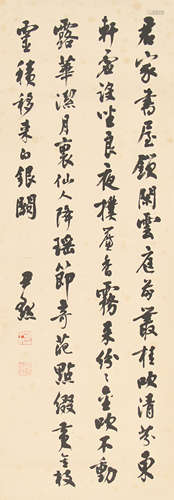 君家書屋額閑雲庭前叢桂吹清芬東
軒虛坐良夜撲簾香霧來紛紛金吹不動
露華潔月裏仙人降瑤節奇葩點綴黃金枝
靈移来白銀闕
尹默